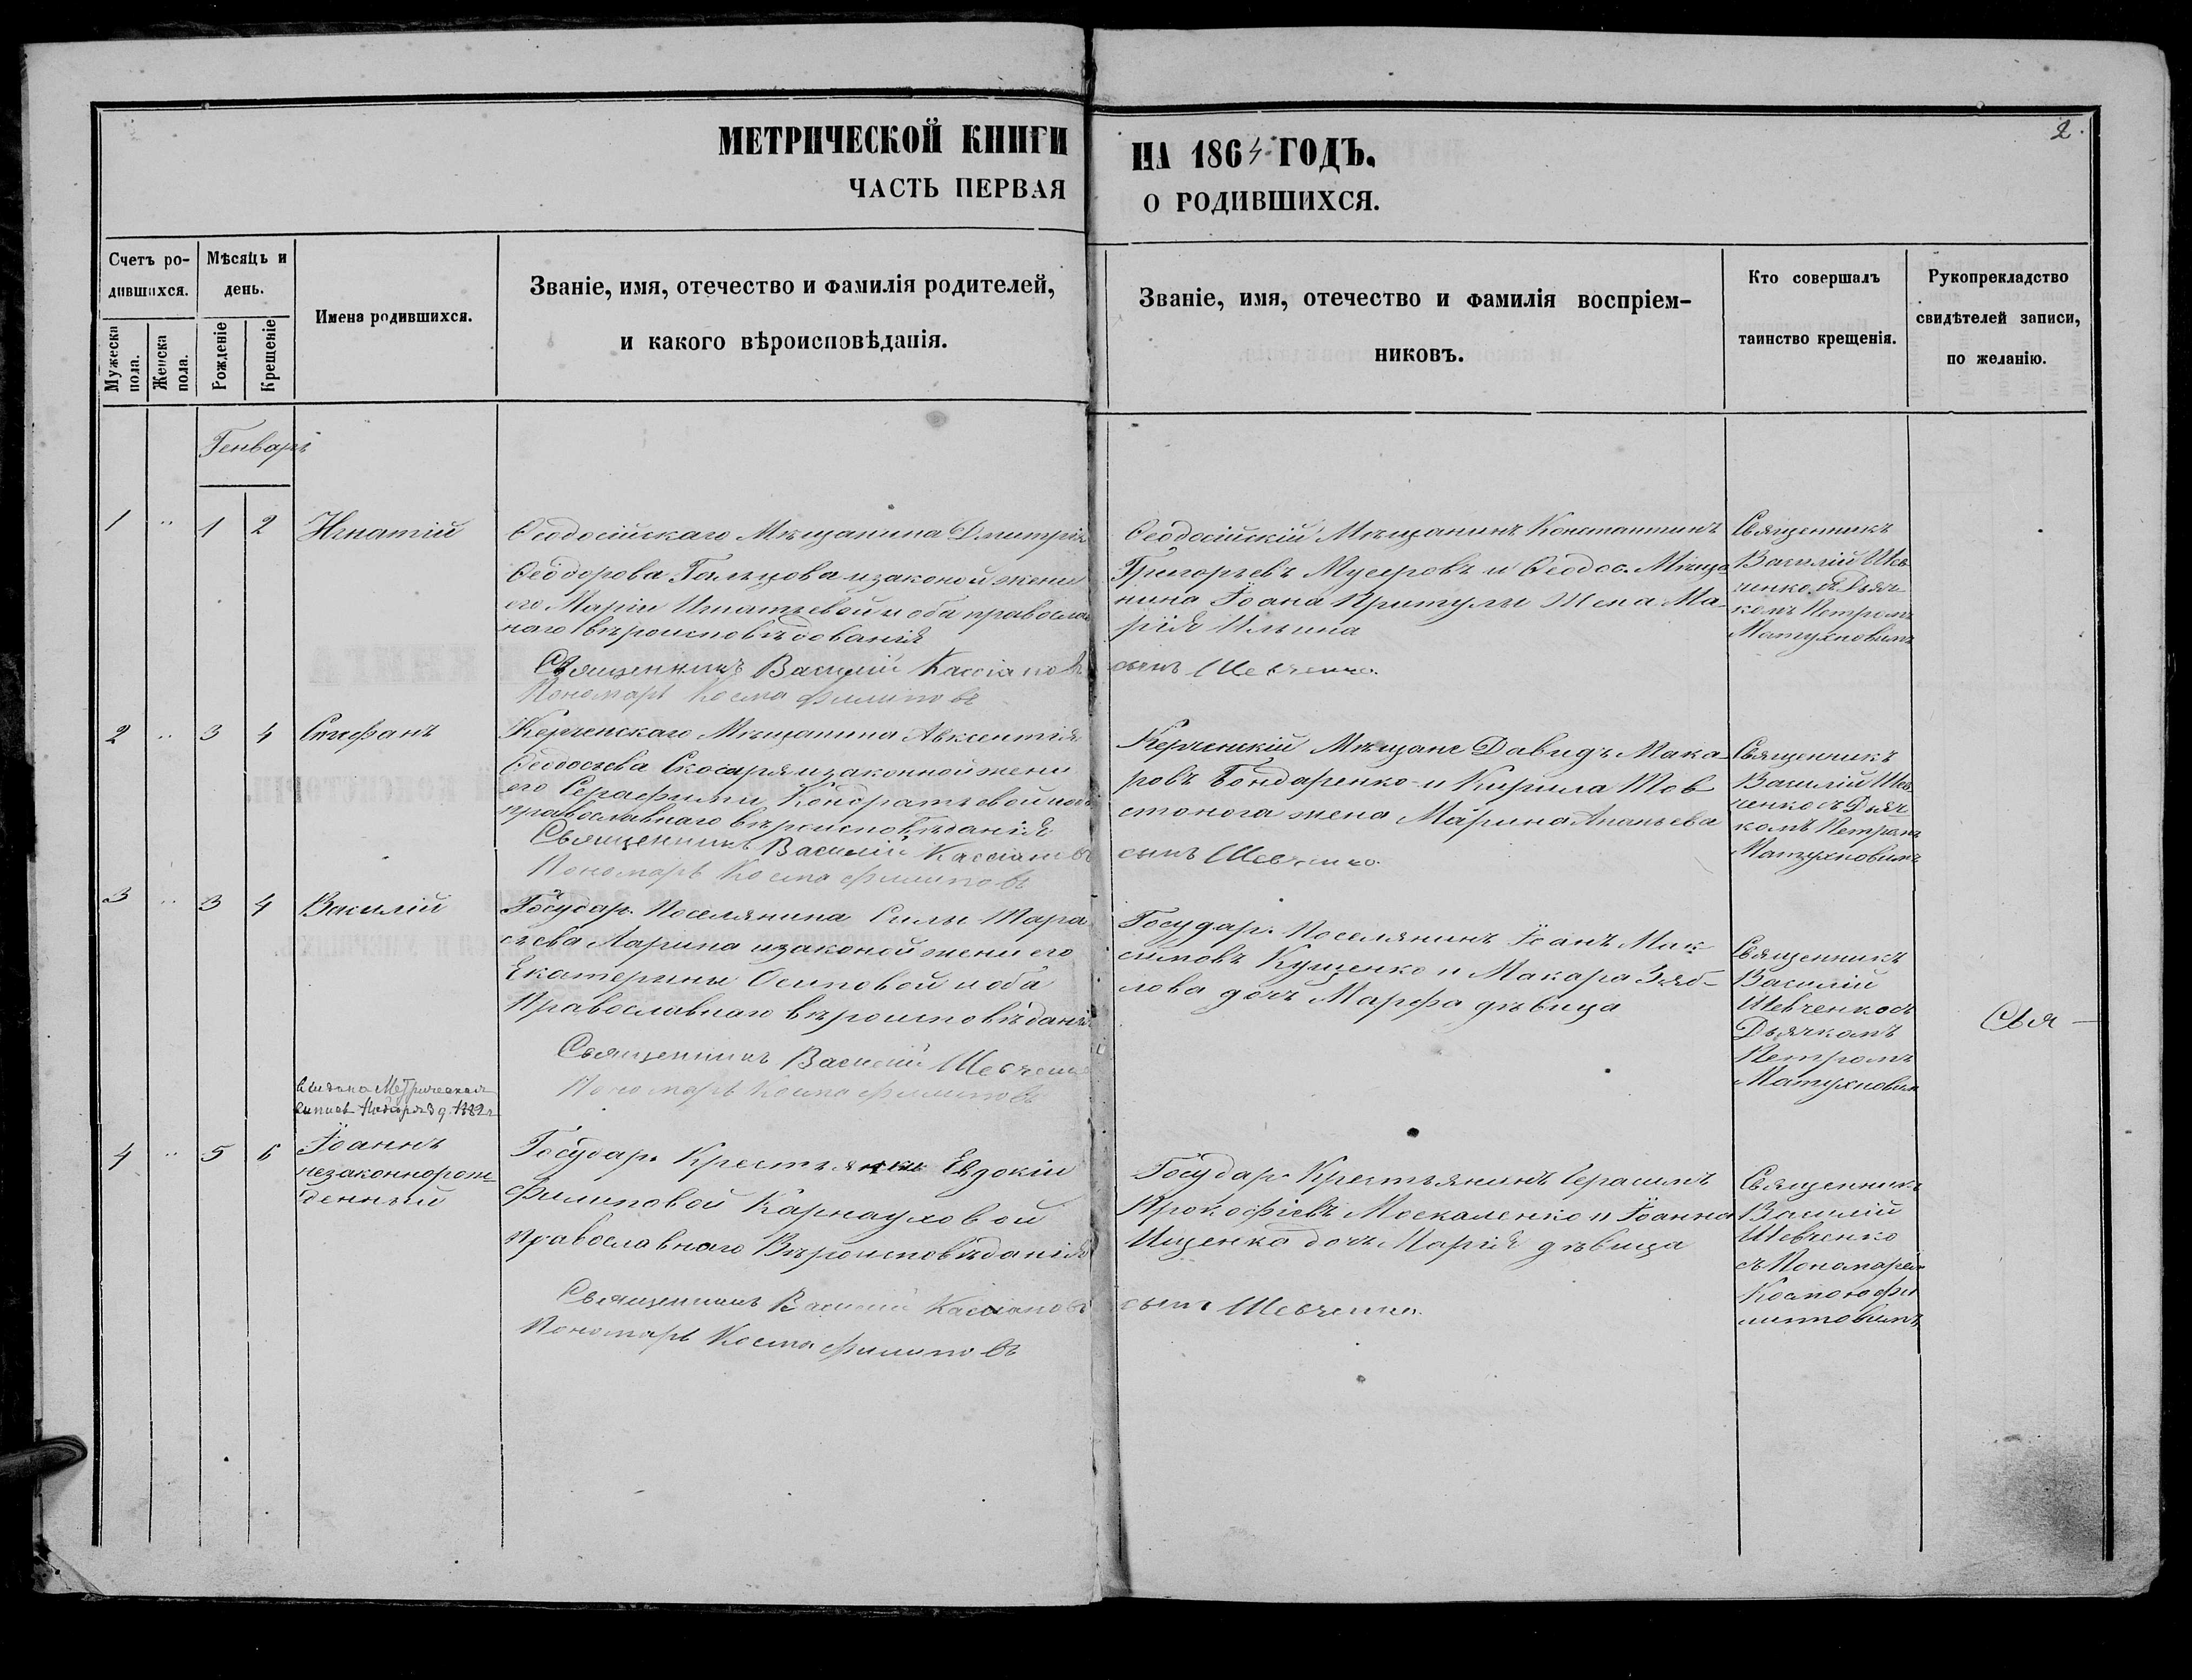 2.
МЕТРИЧЕСКОЙ КНИГИ
НА 1864 ГОДЪ.
ЧАСТЬ ПЕРВАЯ
О РОДИВШИХСЯ.
Счетъ ро-
дившихся.
Мужеска
пола.
Женска
пола.
Мѣсяцъ и
день.
Рожденіе
Крещеніе
Имена родившихся.
Званіе, имя, отечество и фамилія родителей,
и какого вѣроисповѣданія.
Званіе, имя, отечество и фамилія воспріем-
никовъ.
Кто совершалъ
таинство крещенія.
Рукопрекладство
свидѣтелей записи,
по желанію.
Генварь
1 " 1 2 Игнатій
Ѳеодосійскаго Мѣщанина Дмитрія
Ѳеодорова Гальцова и законой жены
его Маріи Игнатьевой и оба православ
наго вѣроисповѣдованія
Священникъ Василій Кассіановъ
Пономарь Косма Филиповъ
Ѳеодосійскій Мѣщанинъ Константинъ
Григорьевъ и Ѳеодос. Мѣща
нина Іоана Притулы Жена Ма-
рія Ильина
сынъ Шевченко.
Священникъ
Василій Шев
ченко съ Дьяч
комъ Петромъ
Матухновимъ
2 " 3 4 Стефанъ
Керченскаго Мѣщанина Авксентія
Ѳеодосьева Скосаря и законной жены
его Серафимы Кондратьевой и оба
православнаго вѣроисповѣданія
Священникъ Василій Кассіановъ
Пономарь Косма Филиповъ
Керченскій Мѣщане Давидъ Мака
ровъ Бондаренко и Кирила Тов
стонога жена Марина Ананьева
сынъ Шевченко.
Священникъ
Василій Шев
ченко съ Дьяч
комъ Петромъ
Матухновимъ
3 " 3 4 Василій
Государ. Поселянина Силы Тара
сьева Ларина и законой жены его
Екатерины Осиповой и оба
Православнаго вѣроисповѣданія
Священникъ Василій Шевченко
Пономарь Косма Филиповъ
Государ. Поселянинъ Іоанъ Мак-
симовъ Кущенко и Макара Зяб-
лова дочъ Марфа дѣвица
Священникъ
Василій
Шевченко съ
Дьячкомъ
Петромъ
Матухновим
Свя-
Метрическая
1882 г
4 " 5 6 Іоаннъ
незаконнорож-
денный
Государ. Крестьянки Евдокіи
Филиповой Карнауховой
православнаго Вѣроисповѣданія
Священникъ Василій Кассіановъ
Пономарь Косма Филиповъ
Государ. Крестьянинъ Герасимъ
Прокофіевъ Москаленко и Іоанна
Ищенка дочъ Марія дѣвица
сынъ Шевченко.
Священникъ
Василій
Шевченко
съ Пономарем
Космою Фи
липповымъ